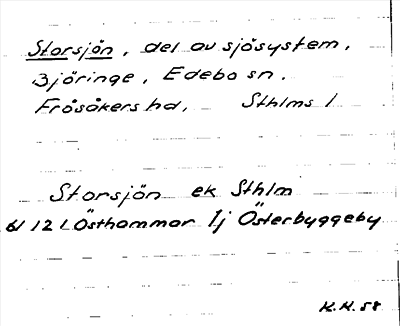 Storsjön, del av sjösystem,
Björinge, Edebo sn.
Frösåkers hd, Sthlms l
Storsjön ek Sthlm
bl 12 L Östhammar lj Österbyggeby
K.H. 58